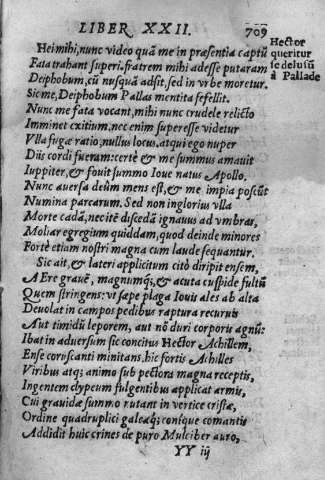 LIBER XXII. 709
Hector
queritur
se delusũ
à Pallade
Hei mihi, nunc video quã me in præsentia captũ
Fata trahant superi. fratrem mihi adesse putaram
Deiphobum, cũ nusquã adsit, sed in vrbe moretur.
Sic me, Deiphobum Pallas mentita fefellit.
Nunc me fata vocant, mihi nunc crudele relicto
Imminet exitium, nec enim superesse videtur
Vlla fugæ ratio, nullus locus, atqui ego nuper
Diis cordi fueram: certè & me summus amauit
Iuppiter, & fouit summo Ioue natus Apollo.
Nunc auersa deûm mens est, & me impia poscũt
Numina parcarum. Sed non inglorius vlla
Morte cadã, necitè discedã ignauus ad vmbras,
Moliar egregium quiddam, quod deinde minores
Fortè etiam nostri magna cum laude sequantur.
Sic ait, & lateri applicitum citò diripit ensem,
AEre grauẽ, magnumq́;, & acuta cuspide fultũ
Quem stringens: vt sæpe plaga Iouis ales ab alta
Deuolat in campos pedibus raptura recuruis
Aut timidũ leporem, aut nõ duri corporis agnũ:
Ibat in aduersum sic concitus Hector Achillem,
Ense coruscanti minitans, hic fortis Achilles
Viribus atq; animo sub pectora magna receptis,
Ingentem clypeum fulgentibus applicat armis,
Cui grauidæ summo nutant in vertice cristæ,
Ordine quadruplici galeæq́; coniq́ue comantis
Addidit huic crines de puro Mulciber auro,
YY iij